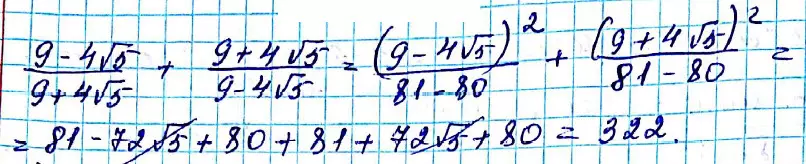 (9-4√5)/(9+4√5) + (9+4√5)/(9-4√5) = (9-4√5)²/(81-80) + (9+4√5)²/(81-80) =
= 81-72√5+80+81+72√5+80 = 322.